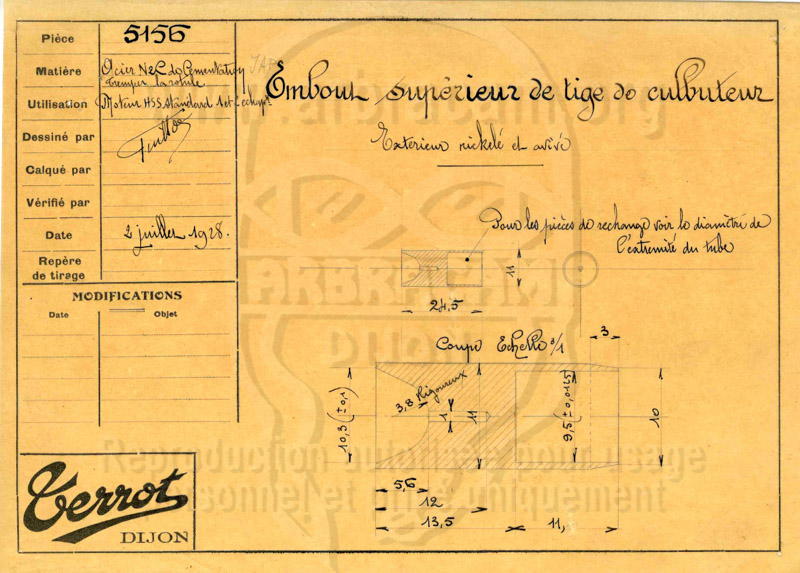 Pièce 5156
Matière Acier N2C de Cementation
Tremper la rotule
Utilisation Moteur HSS standard 1 et
Dessiné par
Calqué par
Vérifié par
Date 2 juillet 1928.
Repère
de tirage
MODIFICATIONS
Date Objet
Terrot
DIJON
Embout supérieur de tige de culbuteur
Exterieur nickelé et avivé
Pour les pièces de rechange voir le diamètre de
l'extremité du tube
11
24,5
Coupe Echelle 3/1
3
10,3 (±0,1)
3,8 Rigoureux
1
11
9,5 (±0,0125)
10
5,6
12
13,5
11,
ARBRACAM
DIJON
Reproduction autorisée pour usage
personnel et privé uniquement